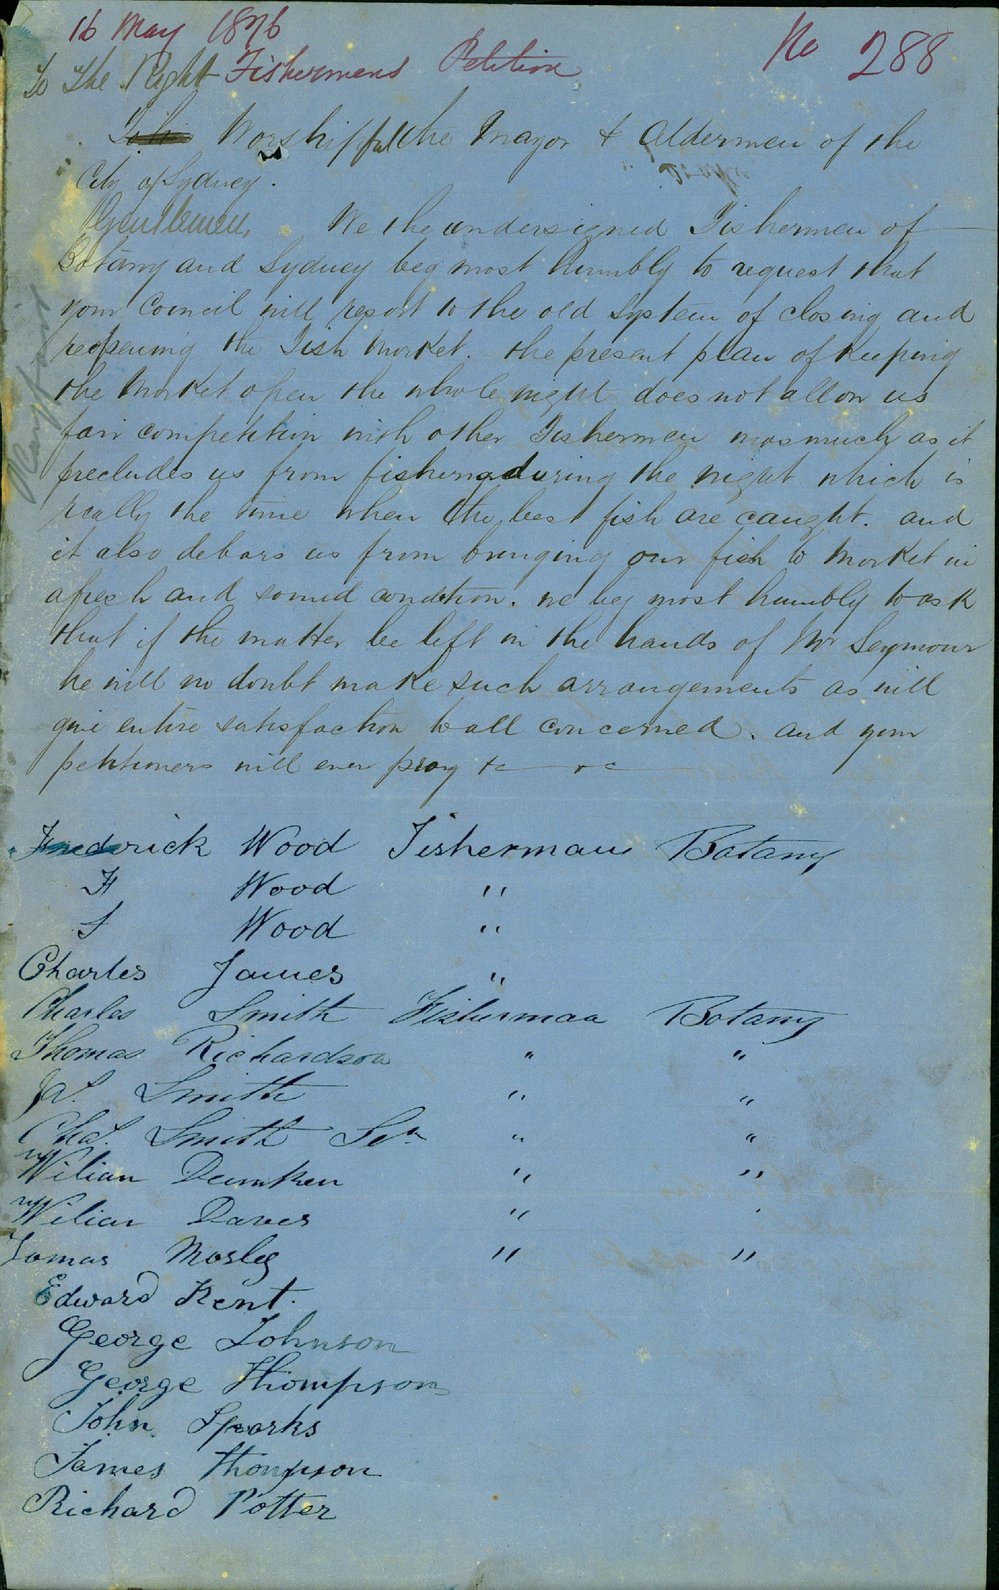 16 May 1876
Fishermens Petition
No 288
To The Right
Worshipful the Mayor & Aldermen of the
City of Sydney.
Gentlemen, We the undersigned Fishermen of
Botany and Sydney beg most humbly to request that
your Council will resort to the old System of closing and
reopening the Fish Market. the present plan of keeping
the Market open the whole night does not allow us
fair competition with other Fishermen inasmuch as it
precludes us from fishing during the night which is
really the time when the best fish are caught. and
it also debars us from bringing our fish to Market in
a fresh and sound condition. we beg most humbly to ask
that if the matter be left in the hands of Mr Seymour
he will no doubt make such arrangements as will
give entire satisfaction to all concerned. and your
petitioners will ever pray &c &c
Frederick Wood Fisherman Botany
H Wood "
S Wood "
Charles James "
Charles Smith Fisherman Botany
Thomas Richardson " "
Ja.s Smith " "
Cha.s Smith Sen " "
Wiliam Dumken " "
Wiliam Daves "
Tomas Mosley " "
Edward Kent.
George Johnson
George Thompson
John Sparks
James Thompson
Richard Potter